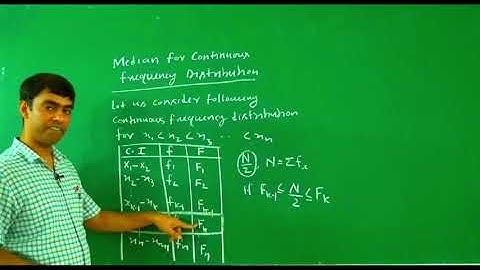 Median for Continuous
frequency Distribution
Let us consider following
Continuous frequency distribution
for x₁ < x₂ < x₃ .. < xₙ
C.I f F
x₁-x₂ f₁ F₁
x₂-x₃ f₂ F₂
xₖ₋₁-xₖ fₖ₋₁ Fₖ₋₁
Fₖ
xₙ-xₙ₊₁ fₙ Fₙ
N/2, N=Σfᵢ
if Fₖ₋₁ ≤ N/2 ≤ Fₖ